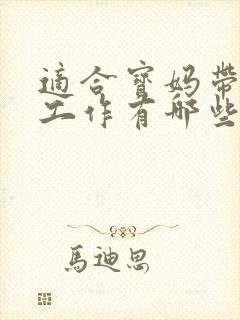 適合寶媽帶
工作有哪些
馬迪思